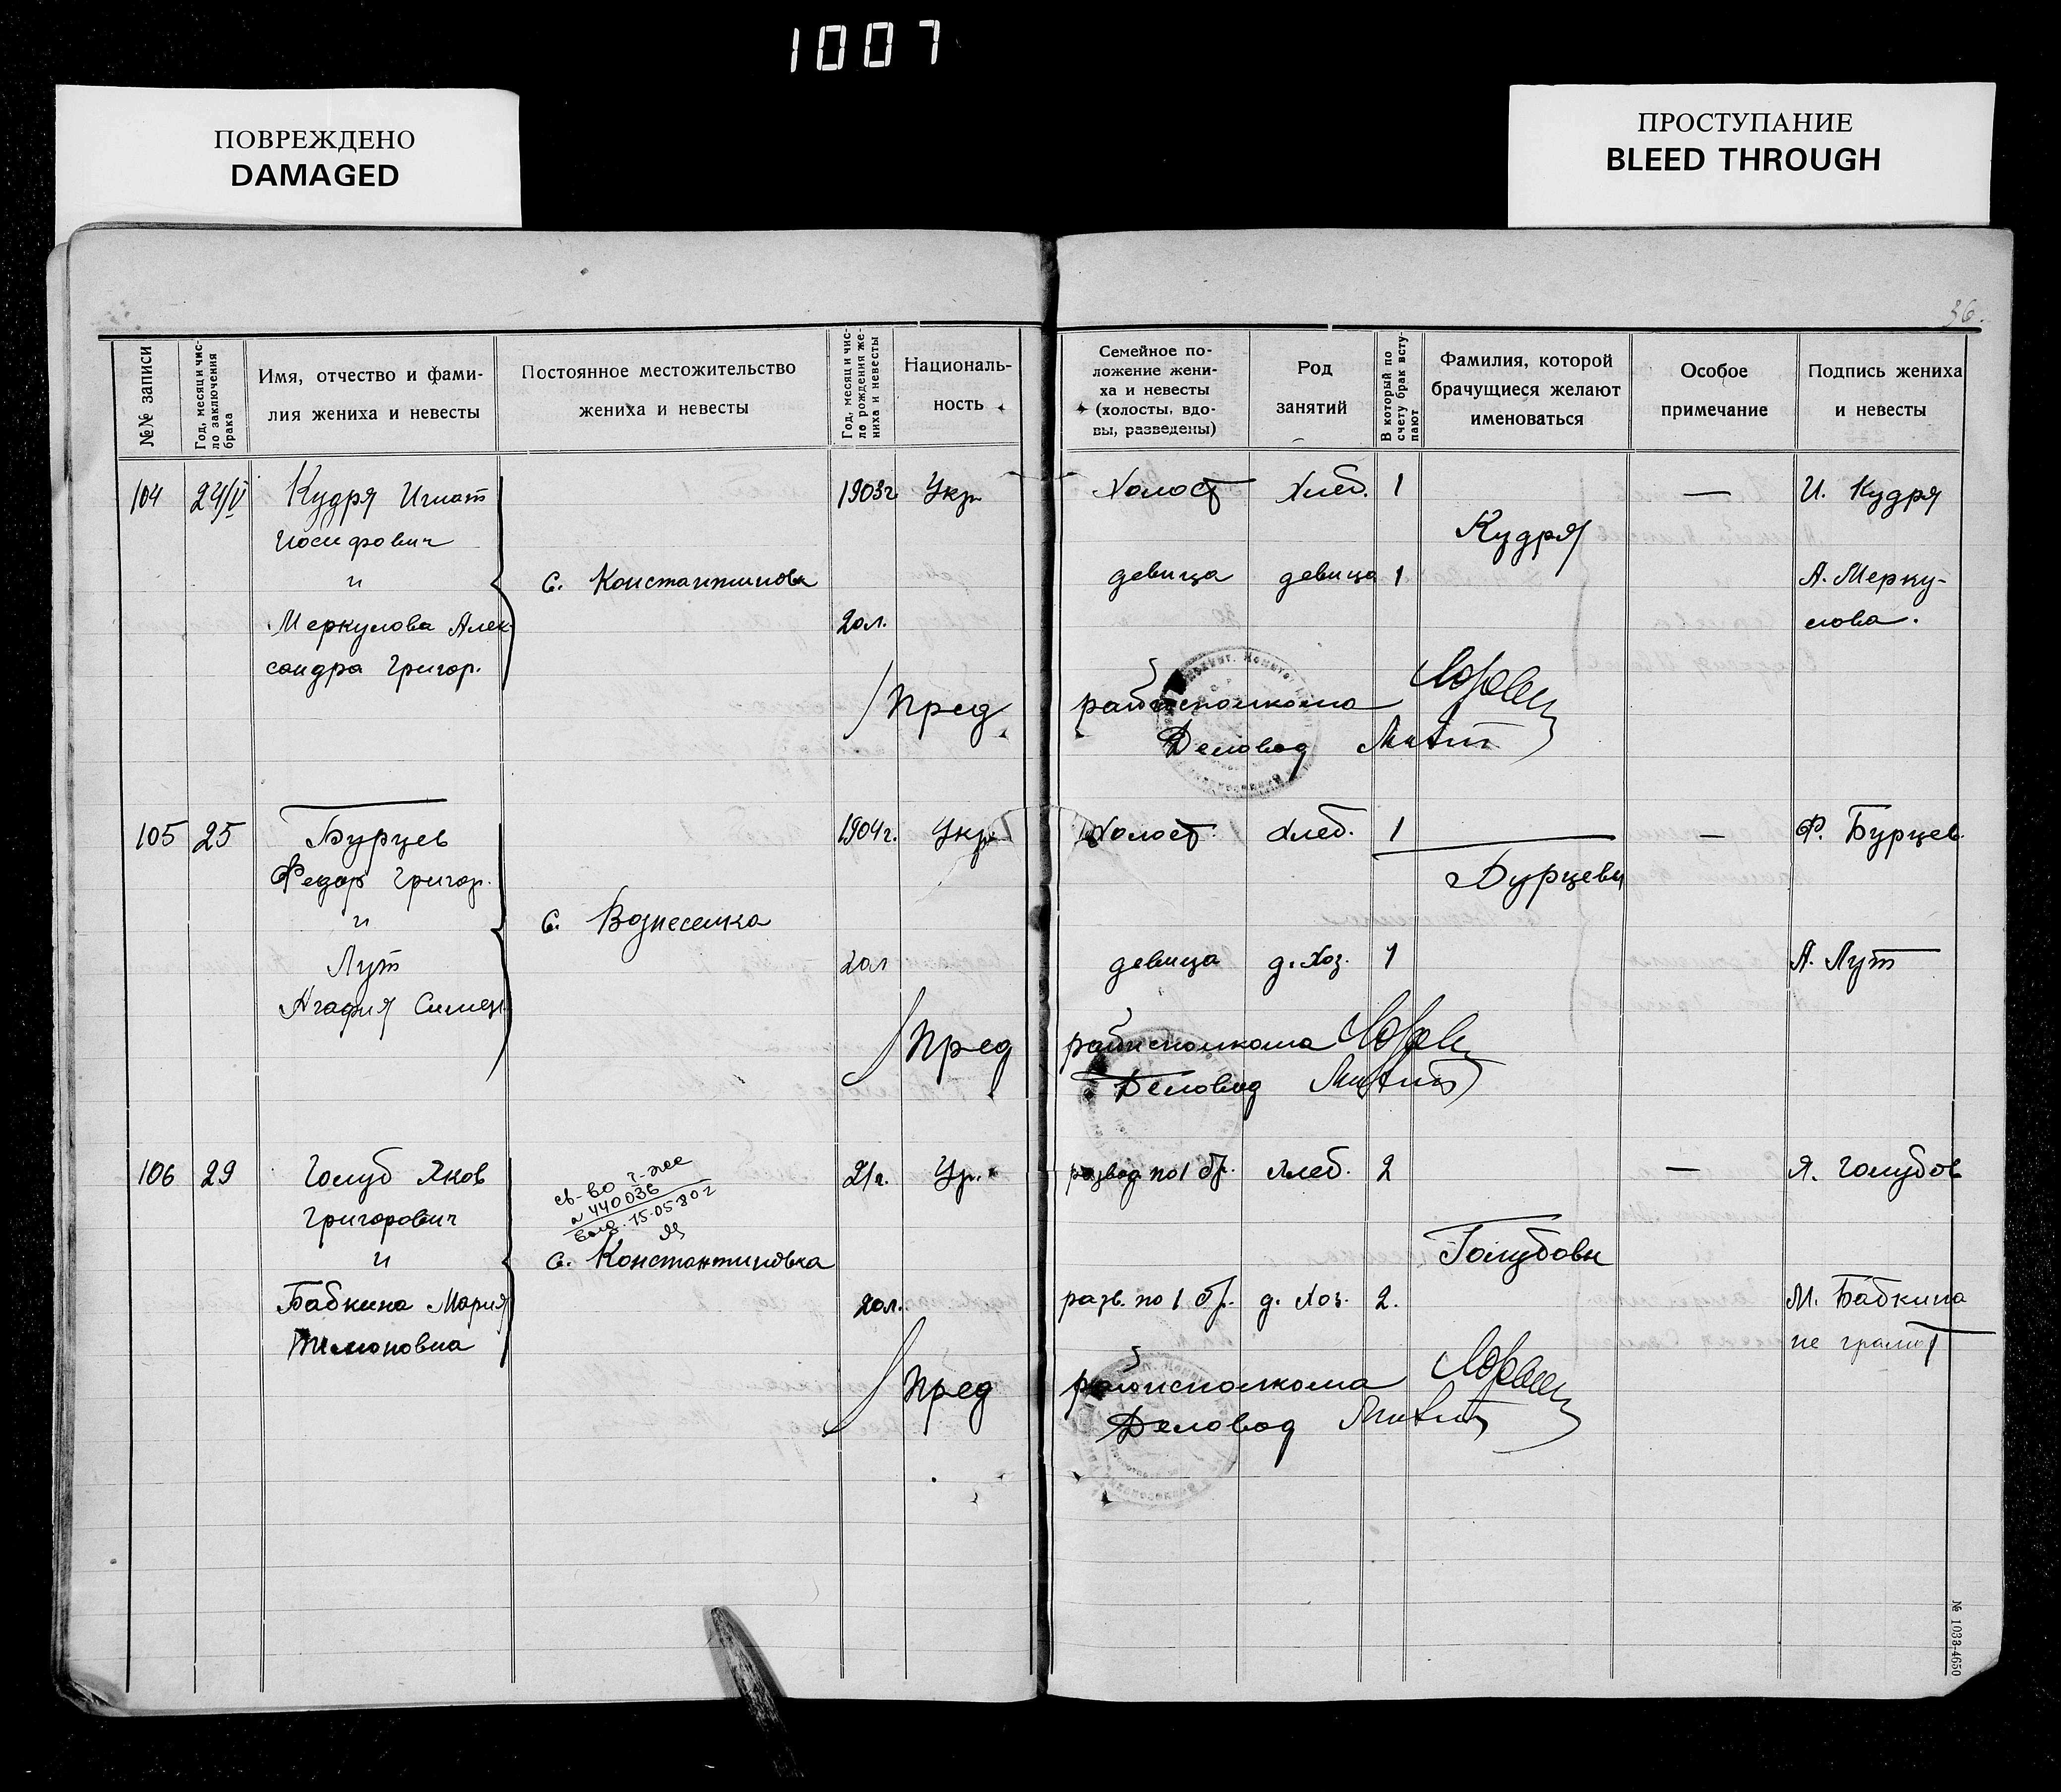 1007
ПОВРЕЖДЕНО
DAMAGED
ПРОСТУПАНИЕ
BLEED THROUGH
36.
№№ записи
Год, месяц и чис-
ло заключения
брака
Имя, отчество и фами-
лия жениха и невесты
Постоянное местожительство
жениха и невесты
Год, месяц и чис-
ло рождения же-
ниха и невесты
Националь-
ность
Семейное по-
ложение жени-
ха и невесты
(холосты, вдо-
вы, разведены)
Род
занятий
В который по
счету брак всту-
пают
Фамилия, которой
брачущиеся желают
именоваться
Особое
примечание
Подпись жениха
и невесты
104 24/V Кудря Игнат 1903г. Укр. Холост Хлеб. 1 — И. Кудря
Иосифович
Кудря
и
с. Константиновка девица девица 1 А. Мерку-
Меркулова Алек- 20л. лова.
сандра Григор.
Пред райисполкома
Деловод
105 25 Бурцев 1904г. Укр. Холост Хлеб. 1 — Ф. Бурцев.
Федор Григор.
Бурцевы
и
с. Вознесенка
Лут 20л девица д. Хоз. 1 А. Лут
Агафия Симен.
Пред райисполкома
Деловод
106 29 Голуб Яков 21г. Ур. развод. по 1 бр. Хлеб. 2 — Я. Голубов
св-во
440036
15-05-80г
Григорович
и
с. Константиновка
Голубовы
Бабкина Мария 20л. разв. по 1 бр. д. Хоз. 2. М. Бабкина
не грамот
Пред райисполкома
Деловод
№ 1033-4650